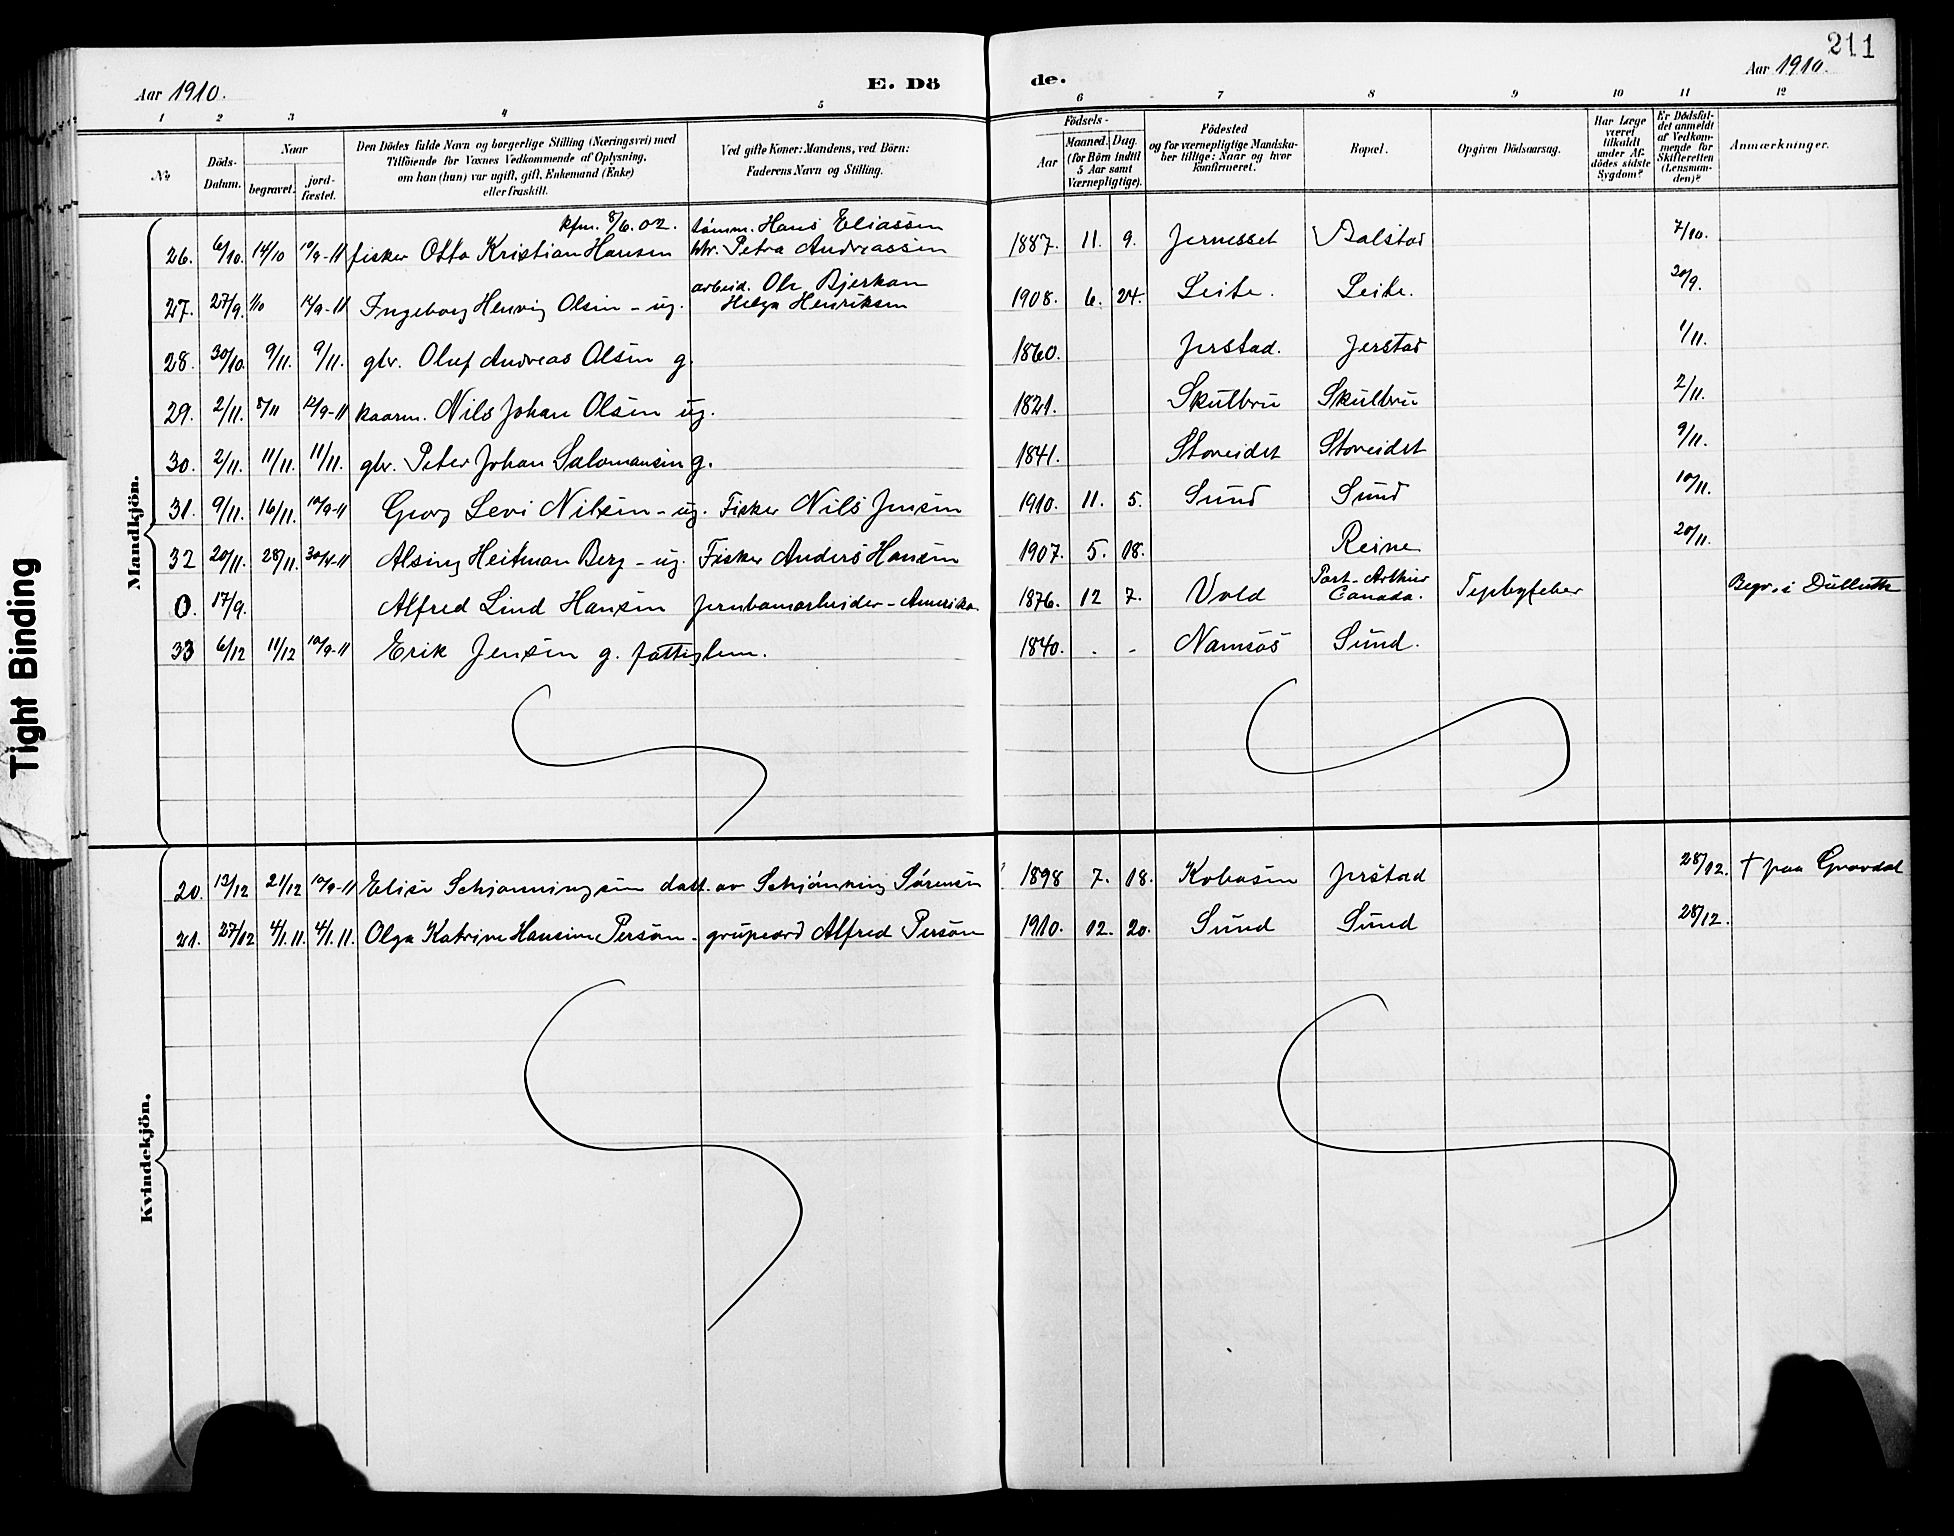 211
Aar 1910.
E. Dö
de.
Aar 1910.
1 2 3 4 5 6 7 8 9 10 11 12
No
Döds-Datum.
Naar
begravet.
jord-fæstet.
Den Dödes fulde Navn og borgerlige Stilling (Næringsvei) med
Tilföiende for Voxnes Vedkommende af Oplysning,
om han (hun) var ugift, gift, Enkemand (Enke)
eller fraskilt.
Ved gifte Koner: Mandens, ved Börn:
Faderens Navn og Stilling.
Födsels-
Aar
Maaned. Dag.
(for Börn indtil
5 Aar samt
Værnepligtige).
Födested
og for værnepligtige Mandska-
ber tillige: Naar og hvor
konfirmeret.
Bopæl.
Opgiven Dödsaarsag.
Har Læge
været
tilkaldt
under Af-
dödes sidste
Sygdom?
Er Dödsfal-
det anmeldt
af Vedkom-
mende for
Skifteretten
(Lensman-
den)?
Anmærkninger.
Mandkjön.
kfm. 8/6.02. tömm. Hans Eliassen
26. 6/10. 14/10 10/9-11 fisker Otto Kristian Hansen htr. Petra Andreassen 1887. 11. 9. Jernesset Balstad 7/10.
arbeid. Ole Bjerkan
27. 27/9. 1/10 14/9-11 Ingeborg Henvig Olsen - ug. Helga Henriksen 1908. 6. 24. Leite. Leite. 20/9.
28. 30/10. 9/11. 9/11. gbr. Oluf Andreas Olsen g. 1860. Jerstad. Jerstad 1/11.
29. 2/11. 8/11 12/9-11 kaarm. Nils Johan Olsen ug. 1821. Skulbru Skulbru 2/11.
30. 2/11. 11/11. 11/11. gbr. Peter Johan Salomonsen g. 1841. Storeidet Storeidet 9/11.
31. 9/11. 16/11. 10/9-11 Georg Levi Nilsen - ug. Fisker Nils Jensen 1910. 11. 5. Sund Sund 10/11.
32 20/11. 28/11. 30/4-11 Alsing Heitman Berg - ug. Fisker Anders Hansen 1907. 5. 18. Reine 20/11.
0. 17/9. Alfred Lind Hansen jernbanarbeider - Amerika 1876. 12 7. Vold Port-Arthur Canada. Begr. i Dulluth
33 6/12 11/12 10/9-11 Erik Jensen g. fattiglem. 1840. . - Namsos Sund.
Kvindekjön.
20. 13/12 21/12 10/9-11 Elise Schjönningsen datt. av Schjönning Sörensen 1898 7. 18. Jerstad 28/12. † paa Gravdal
21. 27/12 4/1.11. 4/1.11. Olga Katrine Hansine Persön - grubearb Alfred Persön 1910. 12. 20. Sund Sund 28/12.
Tight Binding